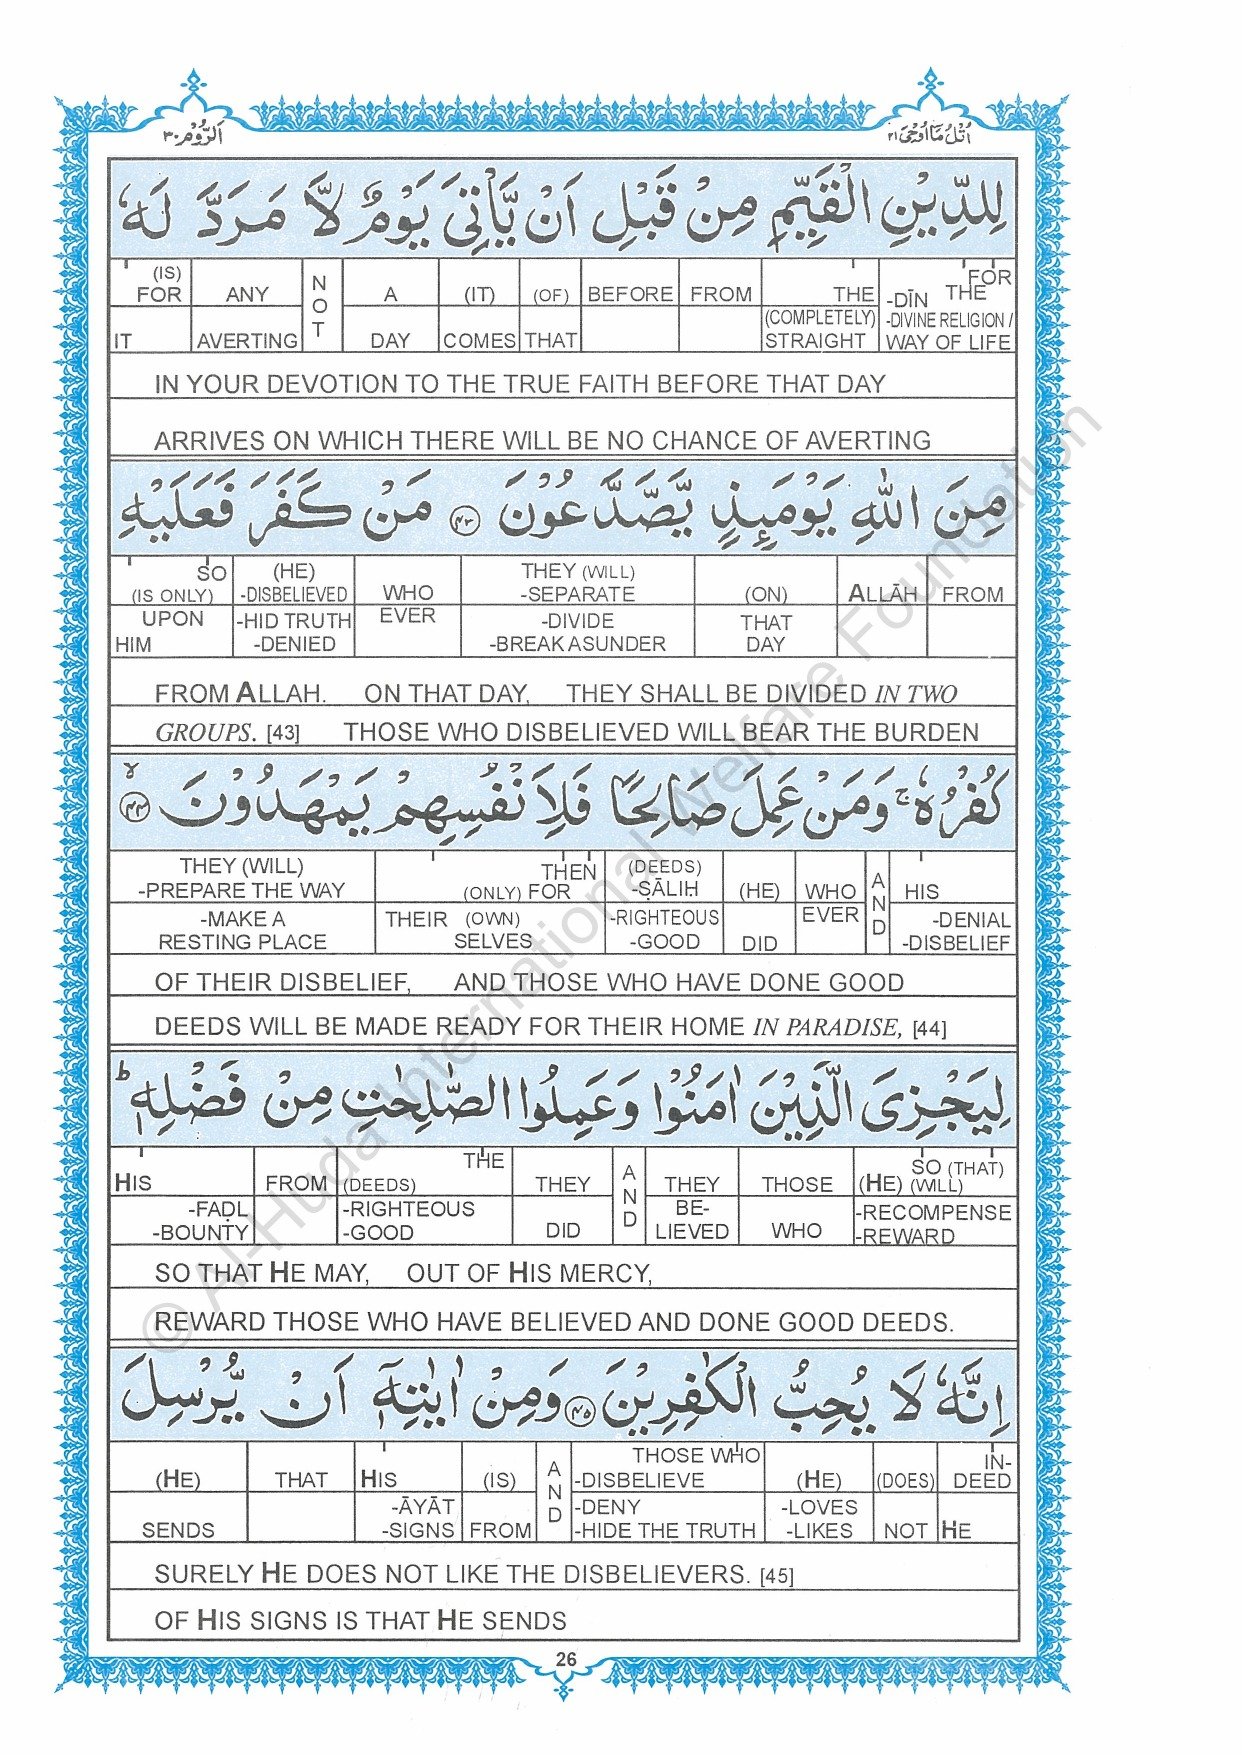 اَلرُّوْم ٣٠
اُتْلُ مَآ اُوْحِىَ ٢١
لِلدِّيْنِ الْقَيِّمِ مِنْ قَبْلِ اَنْ يَّاْتِىَ يَوْمٌ لَّا مَرَدَّ لَهٗ
(IS) FOR IT
ANY AVERTING
NOT
A DAY
(IT) COMES
(OF) THAT
BEFORE
FROM
THE (COMPLETELY) STRAIGHT
FOR THE -DĪN -DIVINE RELIGION / WAY OF LIFE
IN YOUR DEVOTION TO THE TRUE FAITH BEFORE THAT DAY
ARRIVES ON WHICH THERE WILL BE NO CHANCE OF AVERTING
مِنَ اللّٰهِ يَوْمَئِذٍ يَّصَّدَّعُوْنَ ﴿٤٣﴾ مَنْ كَفَرَ فَعَلَيْهِ
SO (IS ONLY) UPON HIM
(HE) -DISBELIEVED -HID TRUTH -DENIED
WHO EVER
THEY (WILL) -SEPARATE -DIVIDE -BREAK ASUNDER
(ON) THAT DAY
ALLĀH
FROM
FROM ALLAH. ON THAT DAY, THEY SHALL BE DIVIDED IN TWO
GROUPS. [43] THOSE WHO DISBELIEVED WILL BEAR THE BURDEN
كُفْرُهٗ ۚ وَمَنْ عَمِلَ صَالِحًا فَلِاَنْفُسِهِمْ يَمْهَدُوْنَ ﴿٤٤﴾ لا
THEY (WILL) -PREPARE THE WAY -MAKE A RESTING PLACE
THEN (ONLY) FOR THEIR (OWN) SELVES
(DEEDS) -ṢĀLIḤ -RIGHTEOUS -GOOD
(HE) DID
WHO EVER
AND
HIS -DENIAL -DISBELIEF
OF THEIR DISBELIEF, AND THOSE WHO HAVE DONE GOOD
DEEDS WILL BE MADE READY FOR THEIR HOME IN PARADISE, [44]
لِيَجْزِىَ الَّذِيْنَ اٰمَنُوْا وَعَمِلُوا الصّٰلِحٰتِ مِنْ فَضْلِهٖ ؕ
HIS -FAḌL -BOUNTY
FROM
THE (DEEDS) -RIGHTEOUS -GOOD
THEY DID
AND
THEY BE-LIEVED
THOSE WHO
SO (THAT) (HE) (WILL) -RECOMPENSE -REWARD
SO THAT HE MAY, OUT OF HIS MERCY,
REWARD THOSE WHO HAVE BELIEVED AND DONE GOOD DEEDS.
اِنَّهٗ لَا يُحِبُّ الْكٰفِرِيْنَ ﴿٤٥﴾ وَمِنْ اٰيٰتِهٖٓ اَنْ يُّرْسِلَ
(HE) SENDS
THAT
HIS -ĀYĀT -SIGNS
(IS) FROM
AND
THOSE WHO -DISBELIEVE -DENY -HIDE THE TRUTH
(HE) -LOVES -LIKES
(DOES) NOT
IN-DEED HE
SURELY HE DOES NOT LIKE THE DISBELIEVERS. [45]
OF HIS SIGNS IS THAT HE SENDS
26
© Al-Huda International Welfare Foundation